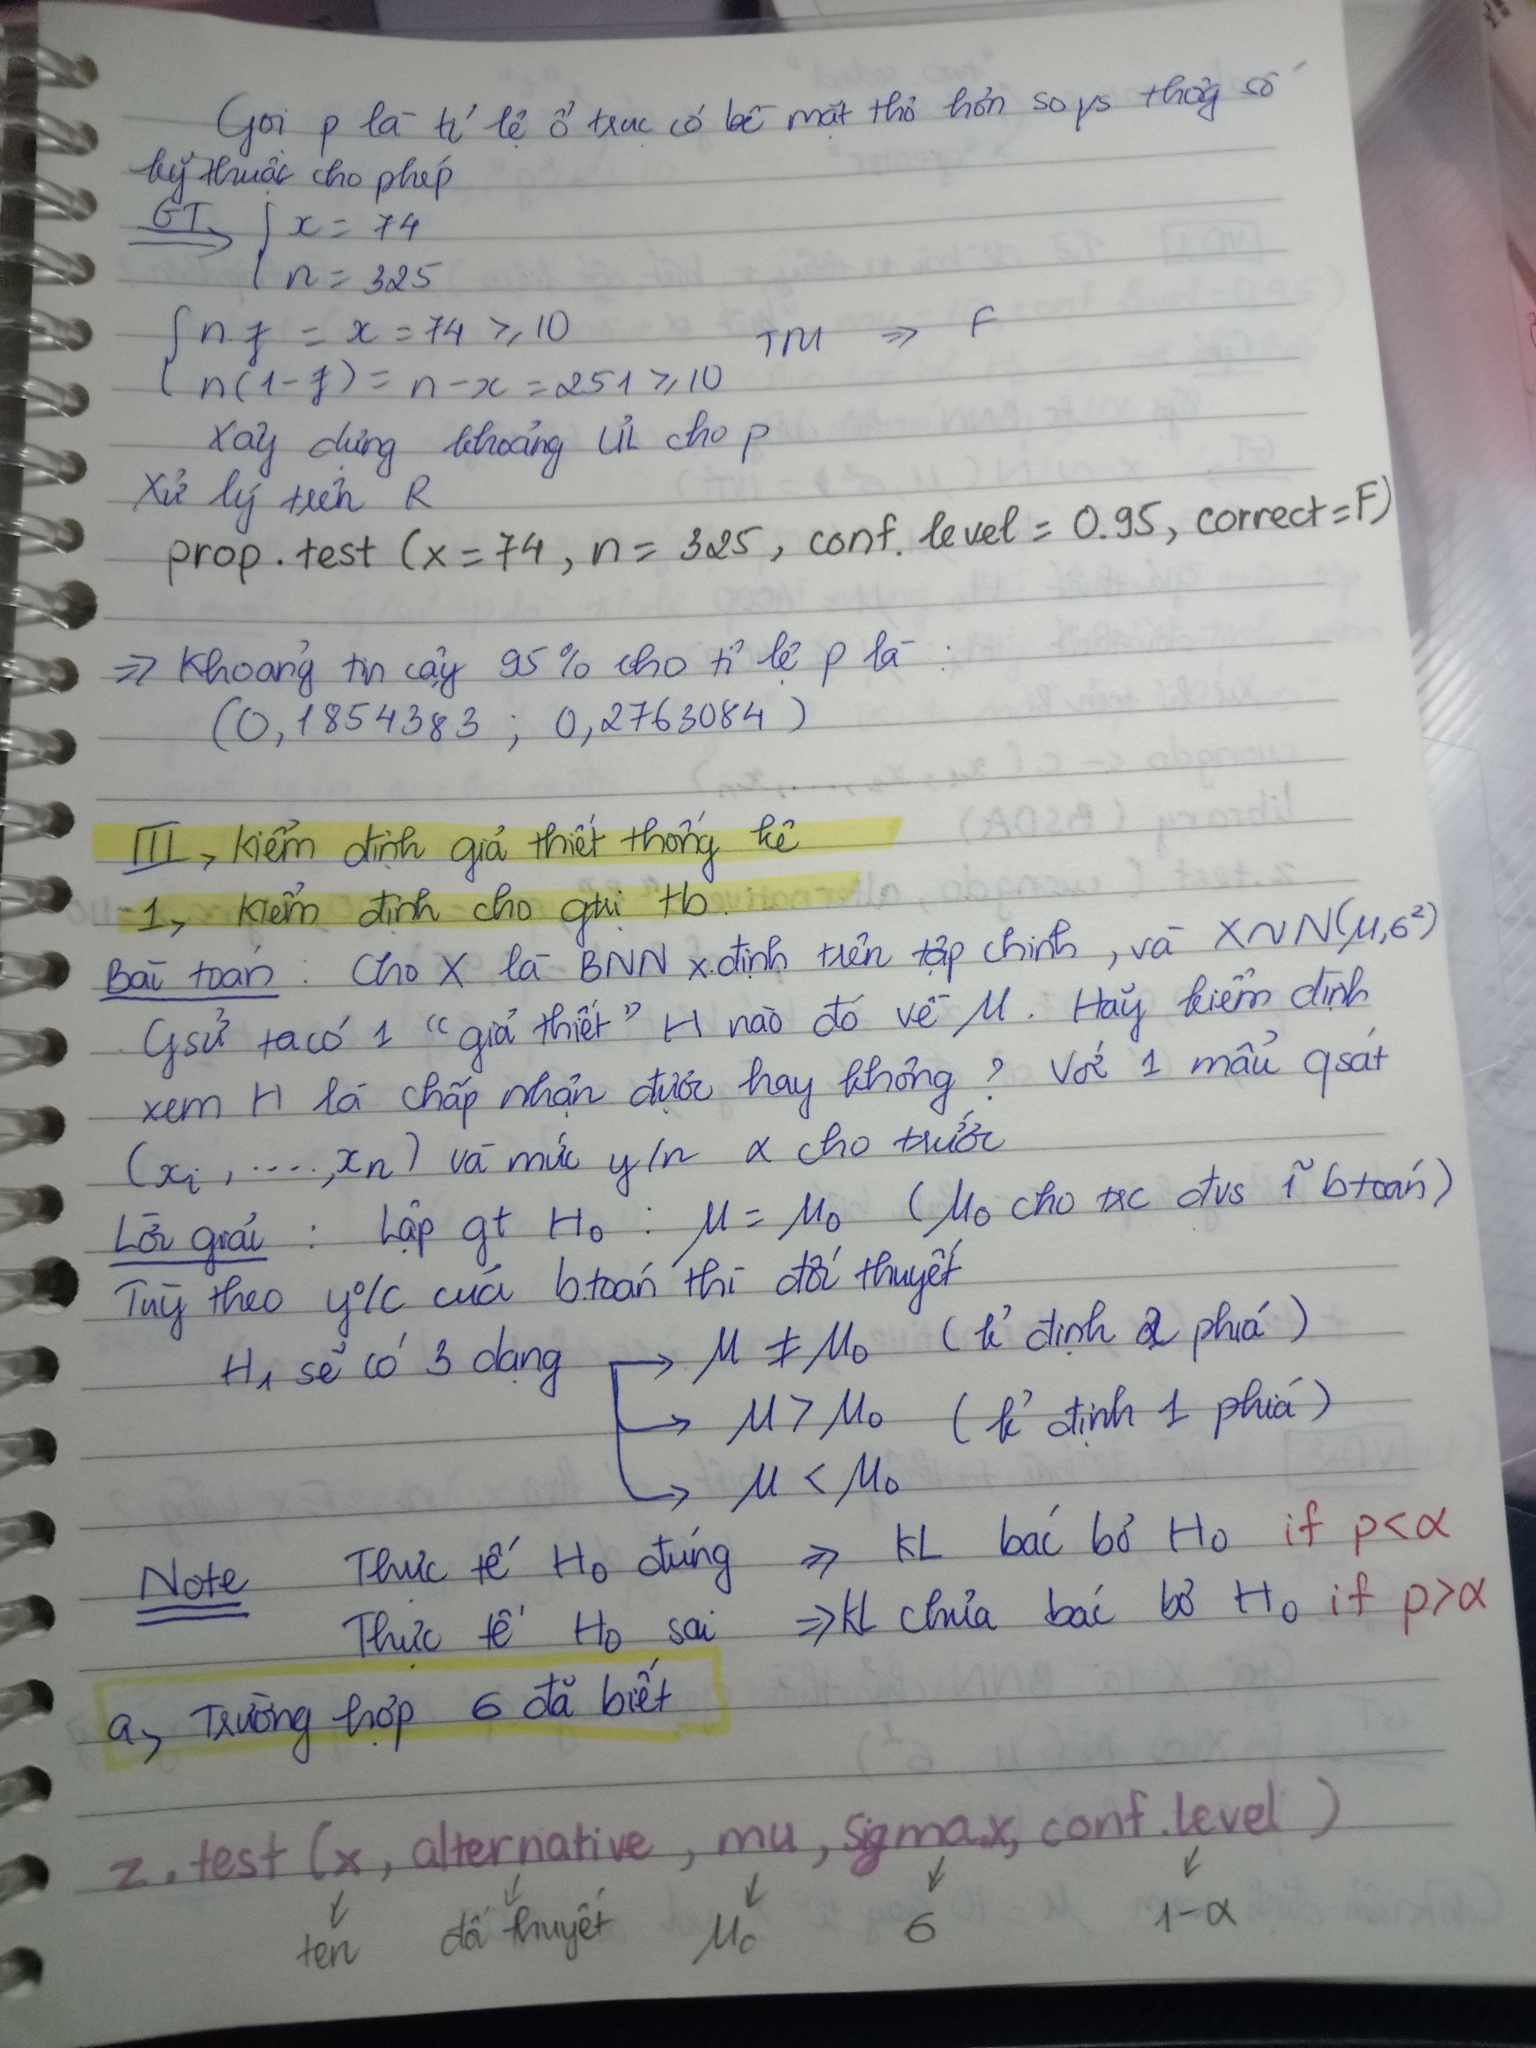 Gọi p là tỉ lệ ổ trục có bề mặt thô hơn so vs thông số
kỹ thuật cho phép
GT => { x = 74
n = 325
{ n.f = x = 74 ≥ 10
n(1-f) = n-x = 251 ≥ 10 TM => F
Xây dựng khoảng ƯL cho p
Xử lý trên R
prop.test (x=74, n= 325, conf.level = 0.95, correct=F)
=> Khoảng tin cậy 95% cho tỉ lệ p là :
(0,1854383 ; 0,2763084)
III, Kiểm định giả thiết thống kê
1, Kiểm định cho gtrị tb.
Bài toán : Cho X là BNN x.định trên tập chính, và X~N(μ,б²)
Gsử ta có 1 "giả thiết" H nào đó về μ. Hãy kiểm định
xem H là chấp nhận được hay không? Với 1 mẫu qsát
(xi, ...., xn) và mức y/n α cho trước
Lời giải : Lập gt H0 : μ = μ0 (μ0 cho trc đvs 1 btoán)
Tùy theo y/c của b.toán thì đối thuyết
H1 sẽ có 3 dạng → μ ≠ μ0 (k' định 2 phía)
→ μ > μ0 (k' định 1 phía)
→ μ < μ0
Note Thực tế H0 đúng => KL bác bỏ H0 if p<α
Thực tế H0 sai => KL chưa bác bỏ H0 if p>α
a, Trường hợp б đã biết
z.test (x, alternative, mu, sigma.x, conf.level)
↓ ↓ ↓ ↓ ↓
ten đối thuyết μ0 б 1-α